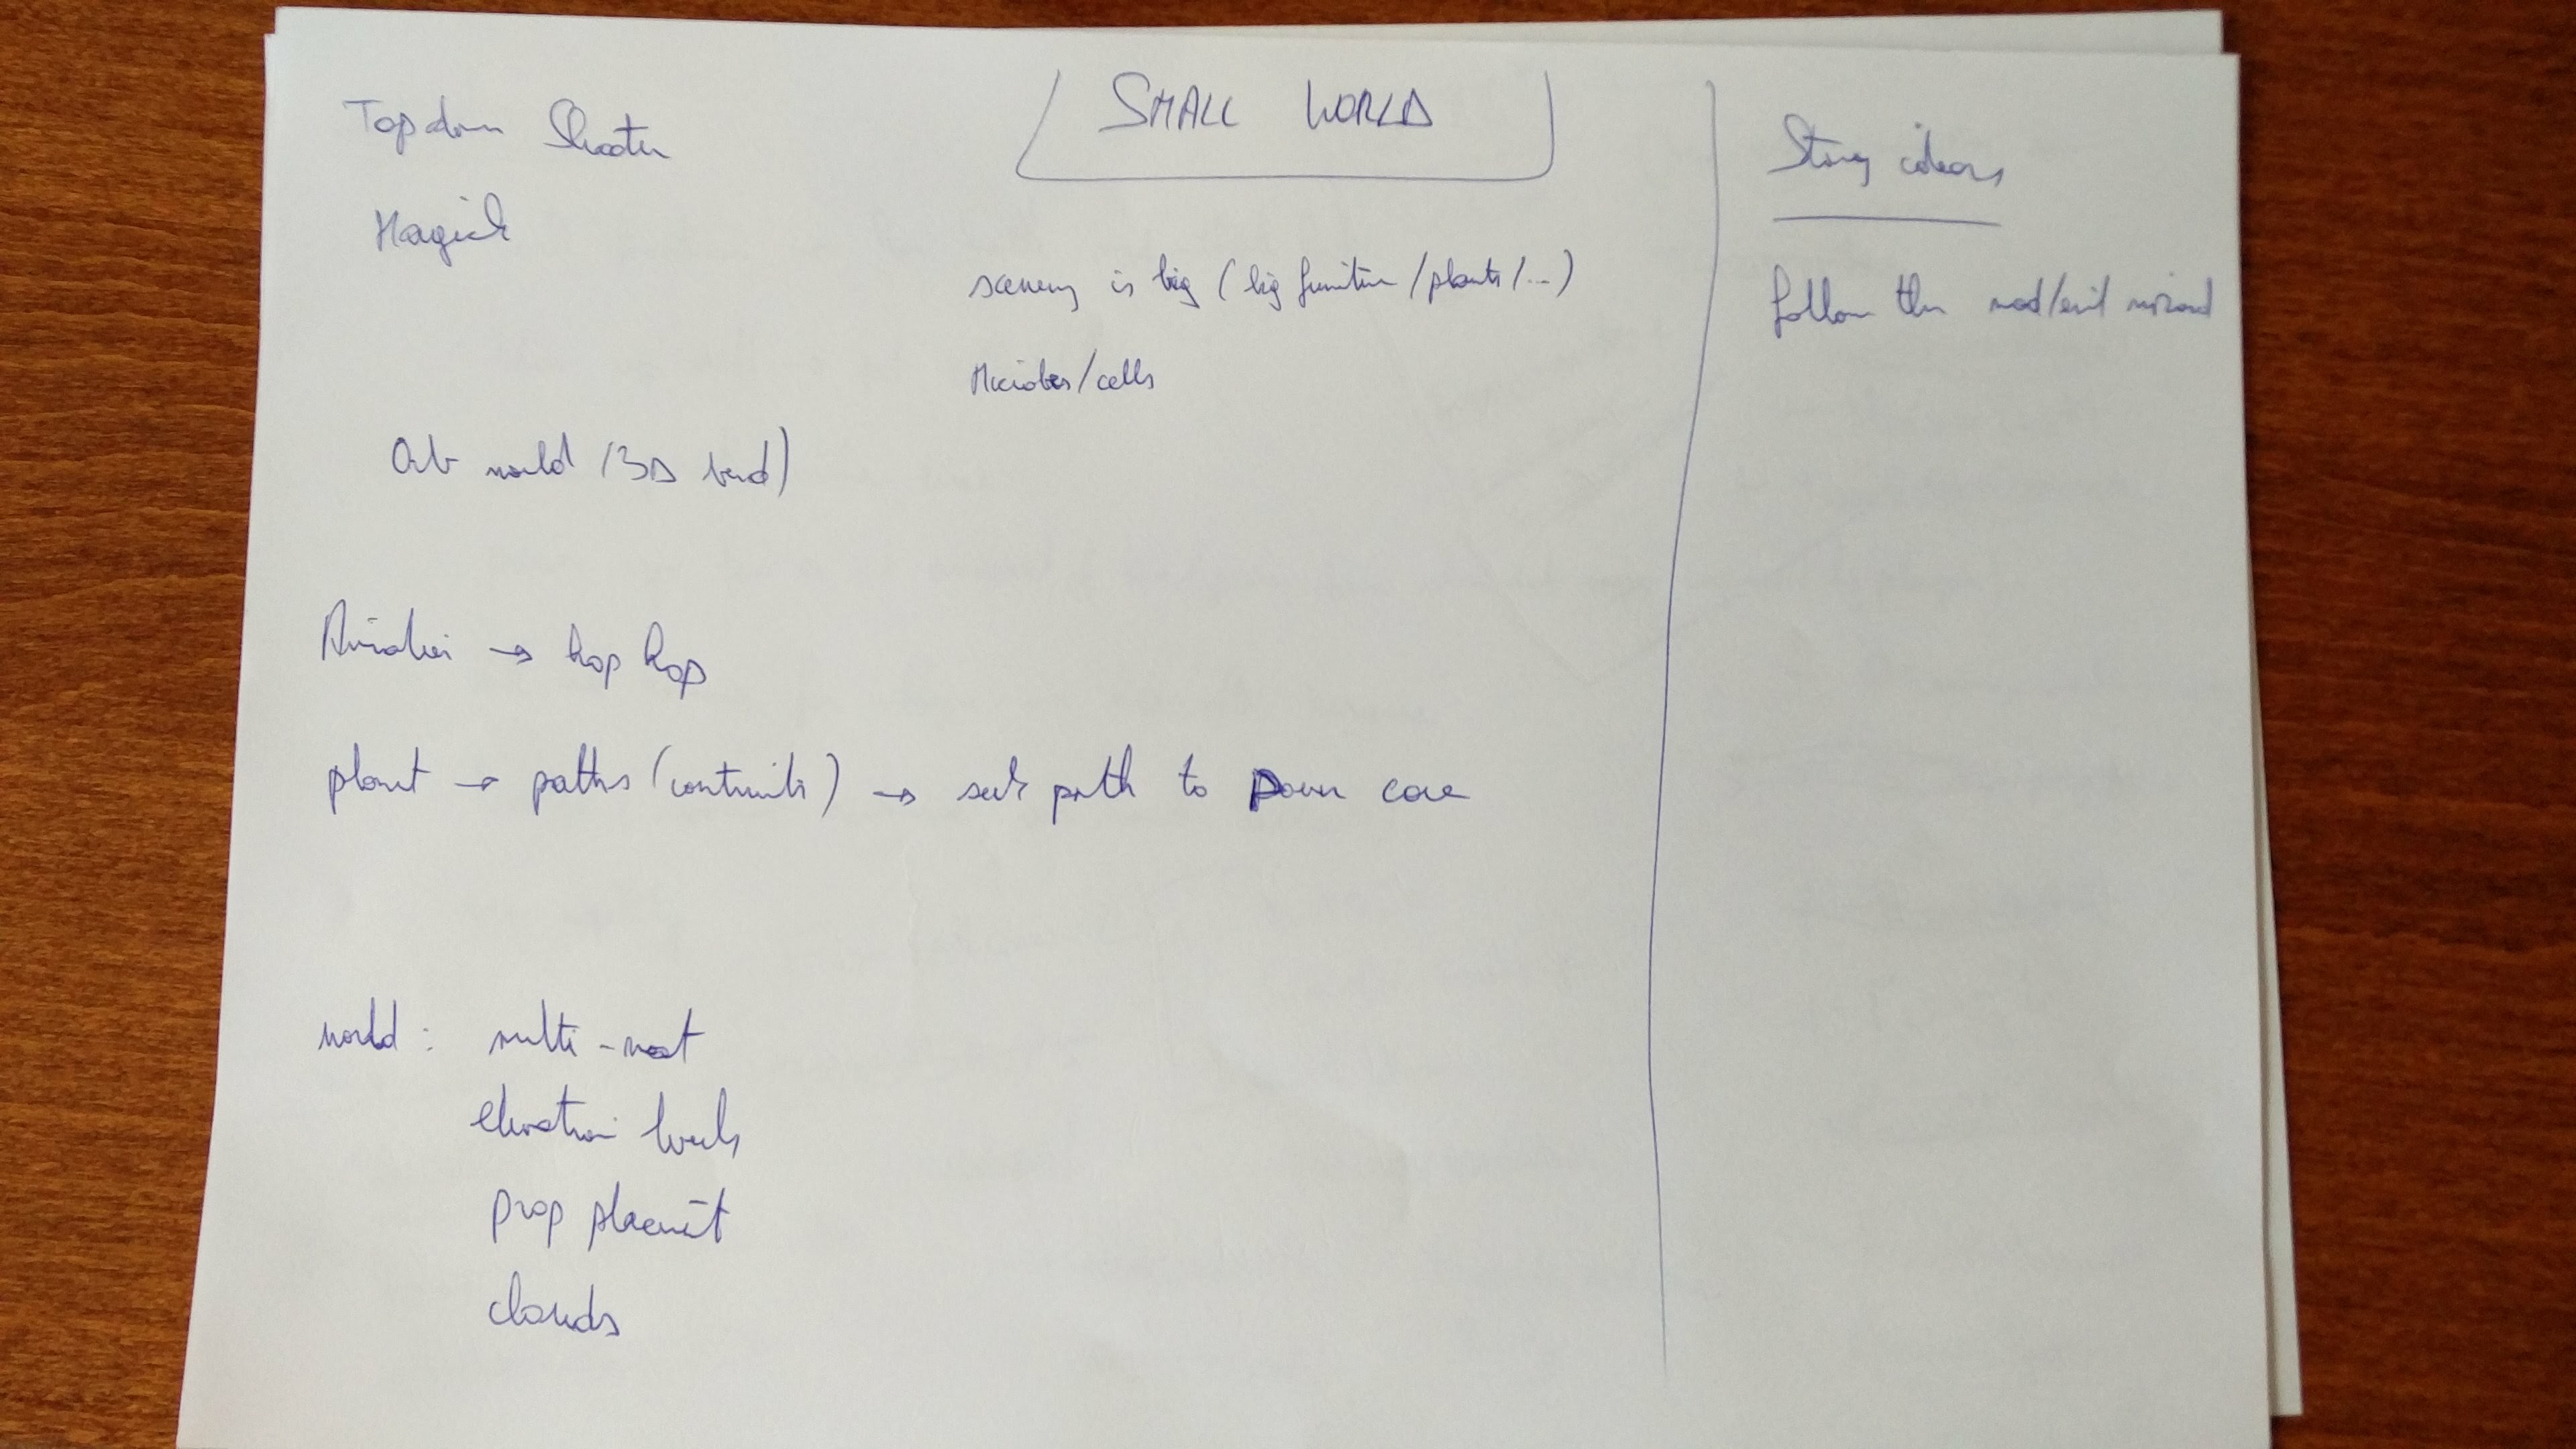 SMALL WORLD
Topdown Shooter
Magick
scenery is big (big furniture/plants/...)
Microbes/cells
Orb world (3D bend)
Animation → hop hop
planet → paths (continents) → seek path to Power core
world : multi-mat
elevation levels
prop placement
clouds
Story ideas
follow the mad/evil wizard